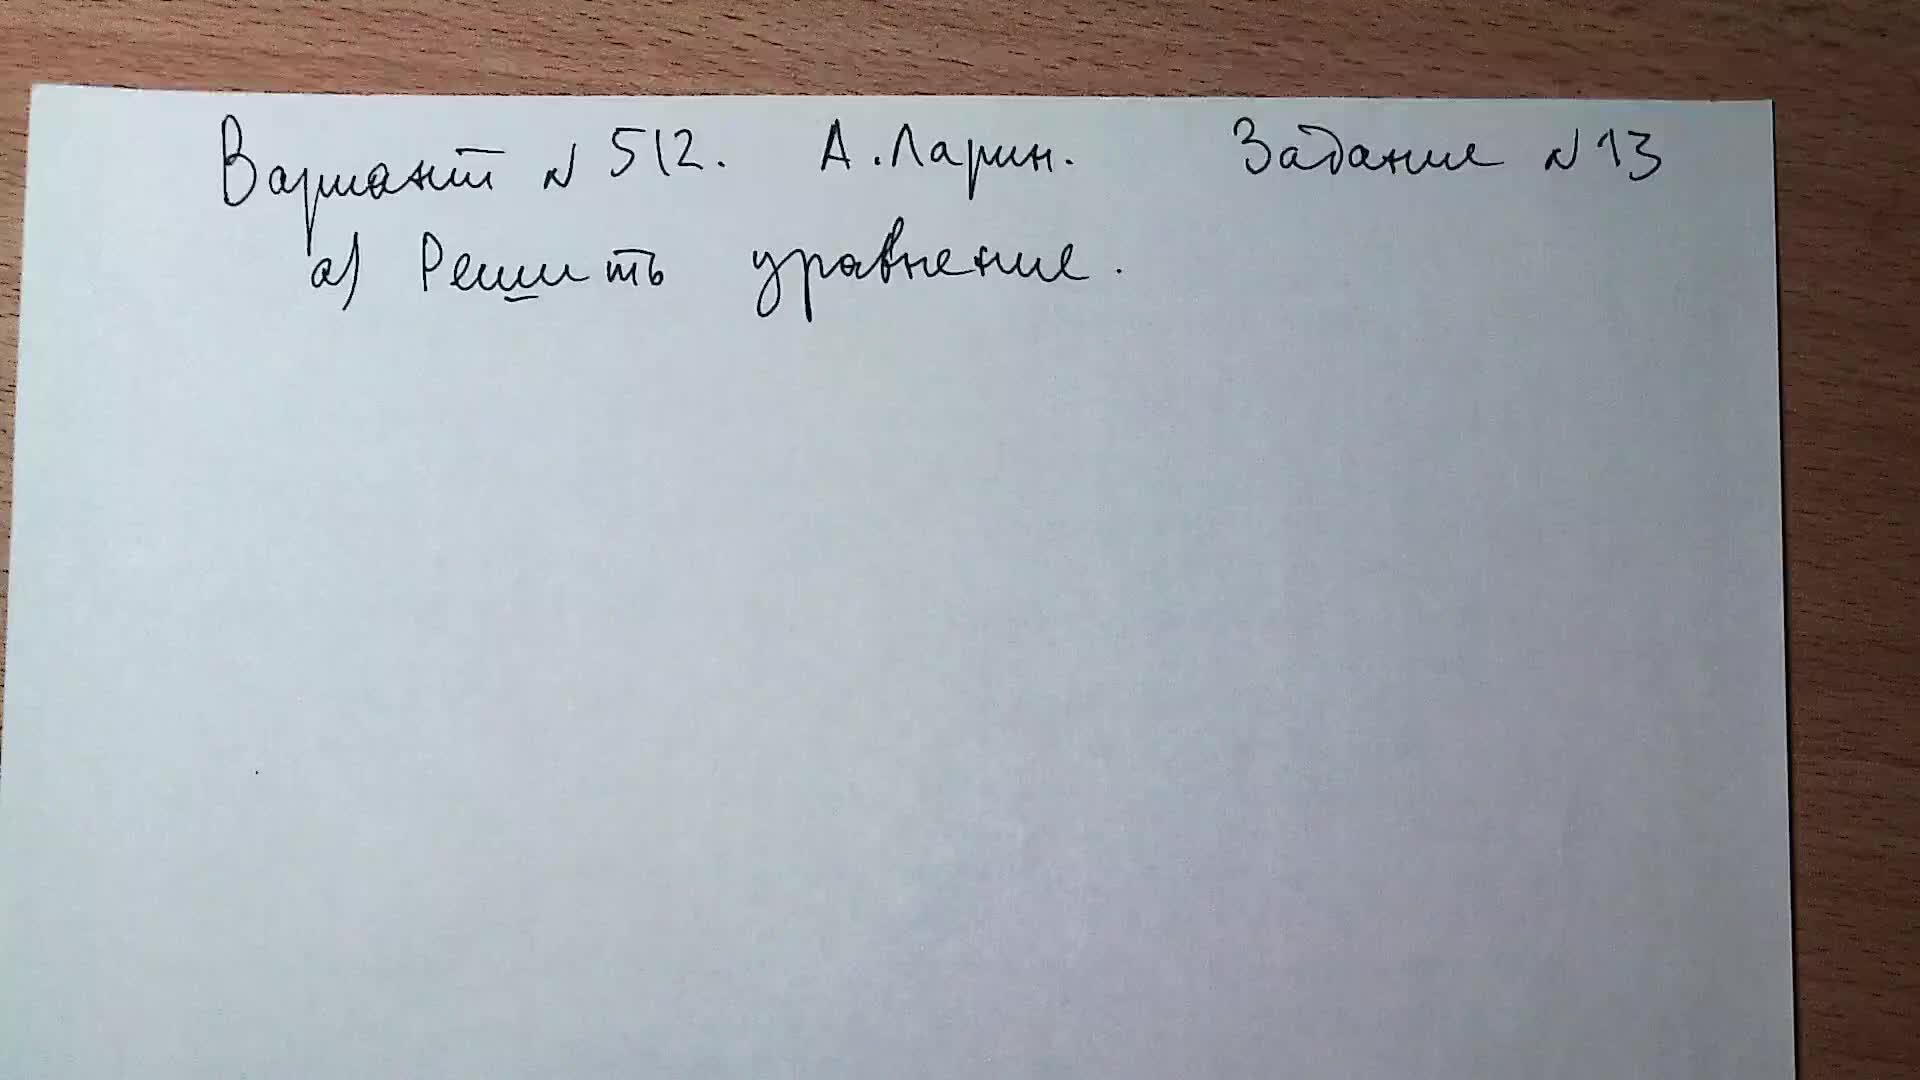 Вариант N 512. А. Ларин. Задание N 13
а) Решить уравнение.